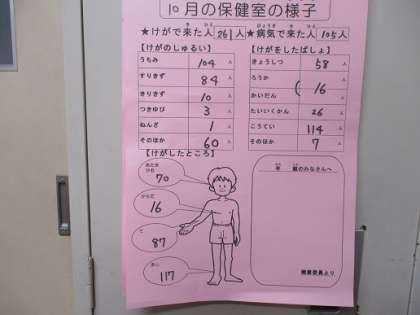 10月の保健室の様子
★けがで来た人 261人 ★病気で来た人 105人
【けがのしゅるい】
うちみ 104 人
すりきず 84 人
きりきず 10 人
つきゆび 3 人
ねんざ 1 人
そのほか 60 人
【けがをしたばしょ】
きょうしつ 58 人
ろうか
かいだん 16 人
たいいくかん 26 人
こうてい 114 人
そのほか 7 人
【けがしたところ】
あたま
かお
70
からだ
16
て
87
あし
117
年 組のみなさんへ
保健委員より